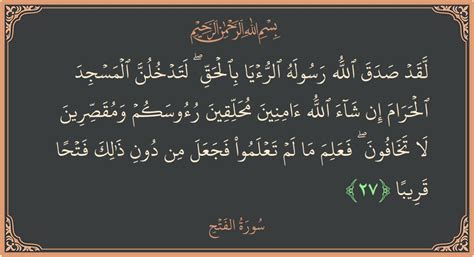 بسم الله الرحمن الرحيم
لَّقَدْ صَدَقَ ٱللَّهُ رَسُولَهُ ٱلرُّءْيَا بِٱلْحَقِّ ۖ لَتَدْخُلُنَّ ٱلْمَسْجِدَ
ٱلْحَرَامَ إِن شَآءَ ٱللَّهُ ءَامِنِينَ مُحَلِّقِينَ رُءُوسَكُمْ وَمُقَصِّرِينَ
لَا تَخَافُونَ ۖ فَعَلِمَ مَا لَمْ تَعْلَمُوا۟ فَجَعَلَ مِن دُونِ ذَٰلِكَ فَتْحًا
قَرِيبًا ﴿٢٧﴾
سورة الفتح